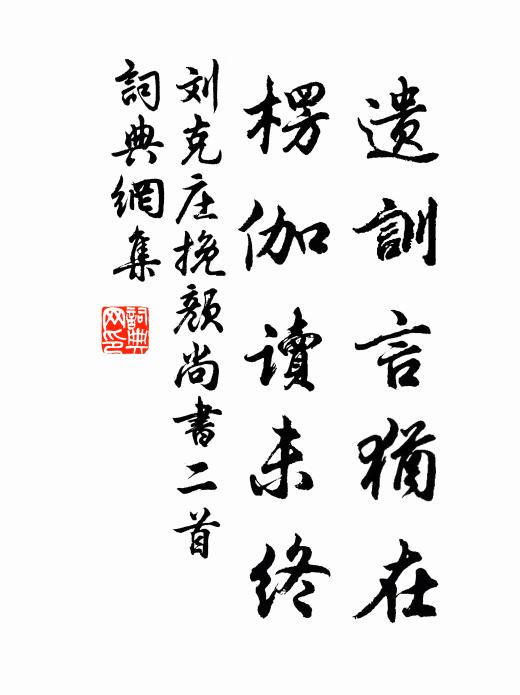 遗訓言猶在
楞伽讀未终
刘克庄挽颜尚書二首
詞典網集
詞典网印